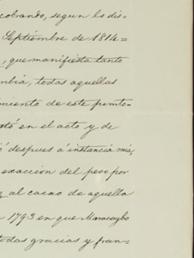 cobrando, segun lo dis-
Septiembre de 1814=
, que manifiesta tanto
mbia, todas aquellas
miento de este punto-
oto en el acto y de
o despues a instancia mia,
esaccion del peso por
al cacao de aquella
1793 en que Maracaybo
todas gracias y fran-